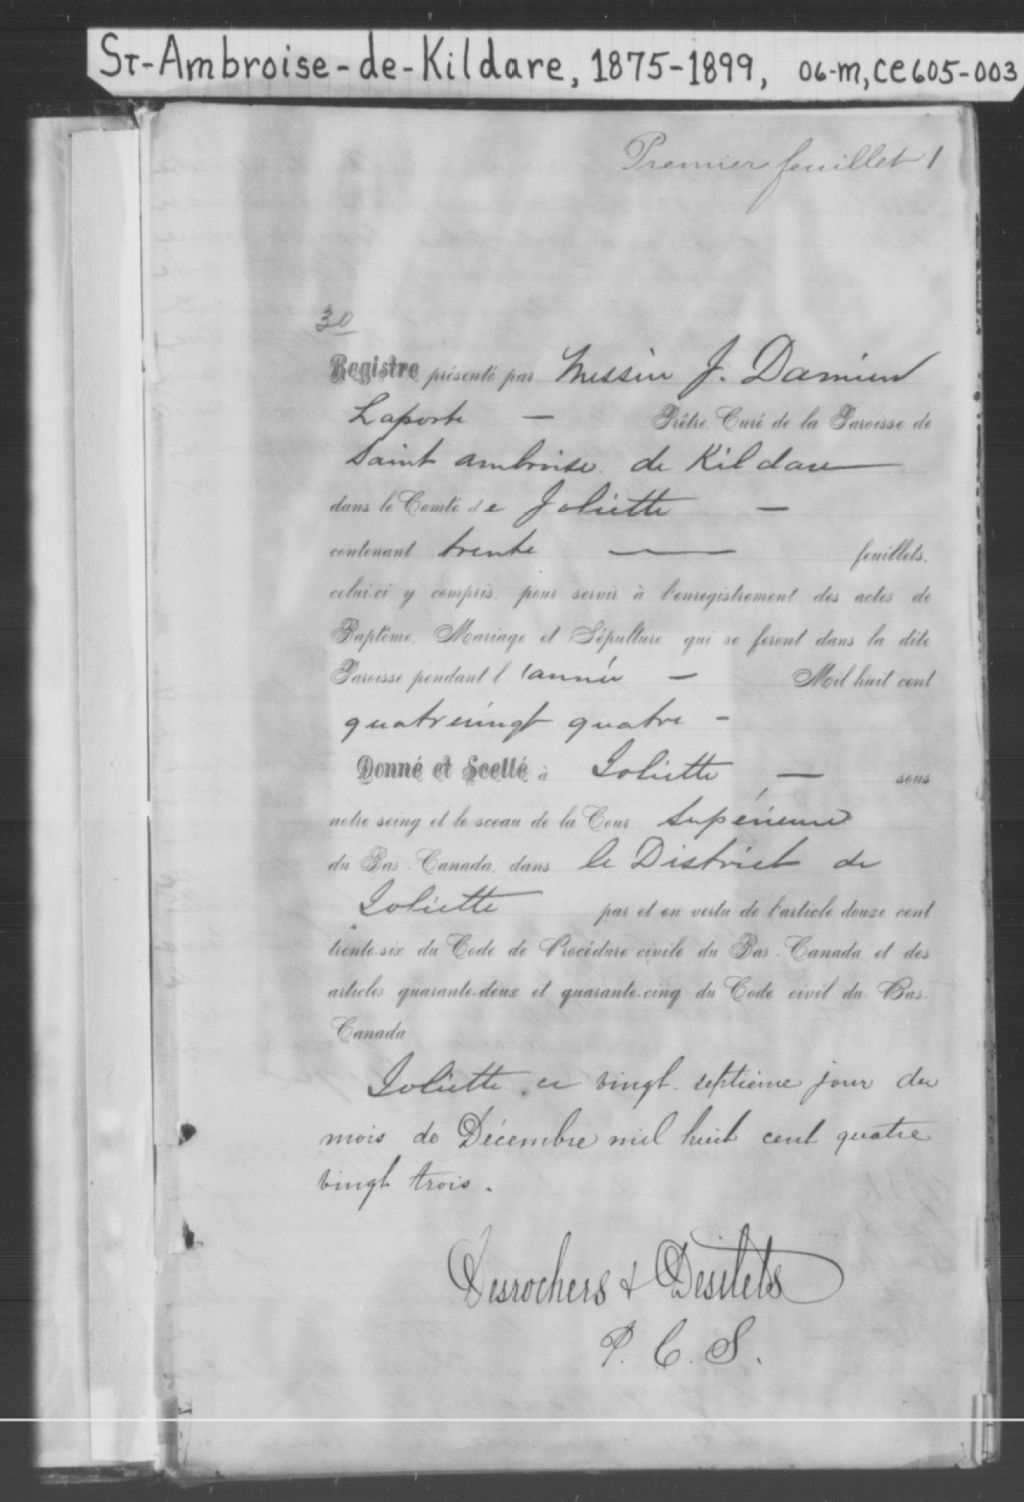 St-Ambroise-de-Kildare, 1875-1899, 06-M, CE605-003
Premier feuillet 1
30
Registre présenté par Messire J. Damien
Laporte — Prêtre, Curé de la Paroisse de
Saint Ambroise de Kildare
dans le Comté de Joliette —
contenant trente — feuillets,
celui-ci y compris, pour servir à l'enregistrement des actes de
Baptême, Mariage et Sépulture qui se feront dans la dite
Paroisse pendant l'année — Mil huit cent
quatrevingt quatre -
Donné et Scellé à Joliette — sous
notre seing et le sceau de la Cour Supérieure
du Bas-Canada, dans le District de
Joliette par et en vertu de l'article douze cent
trente-six du Code de Procédure civile du Bas-Canada et des
articles quarante-deux et quarante-cinq du Code civil du Bas-
Canada
Joliette ce vingt-septième jour du
mois de Décembre mil huit cent quatre
vingt trois.
Desrochers & Desilets
P. C. S.